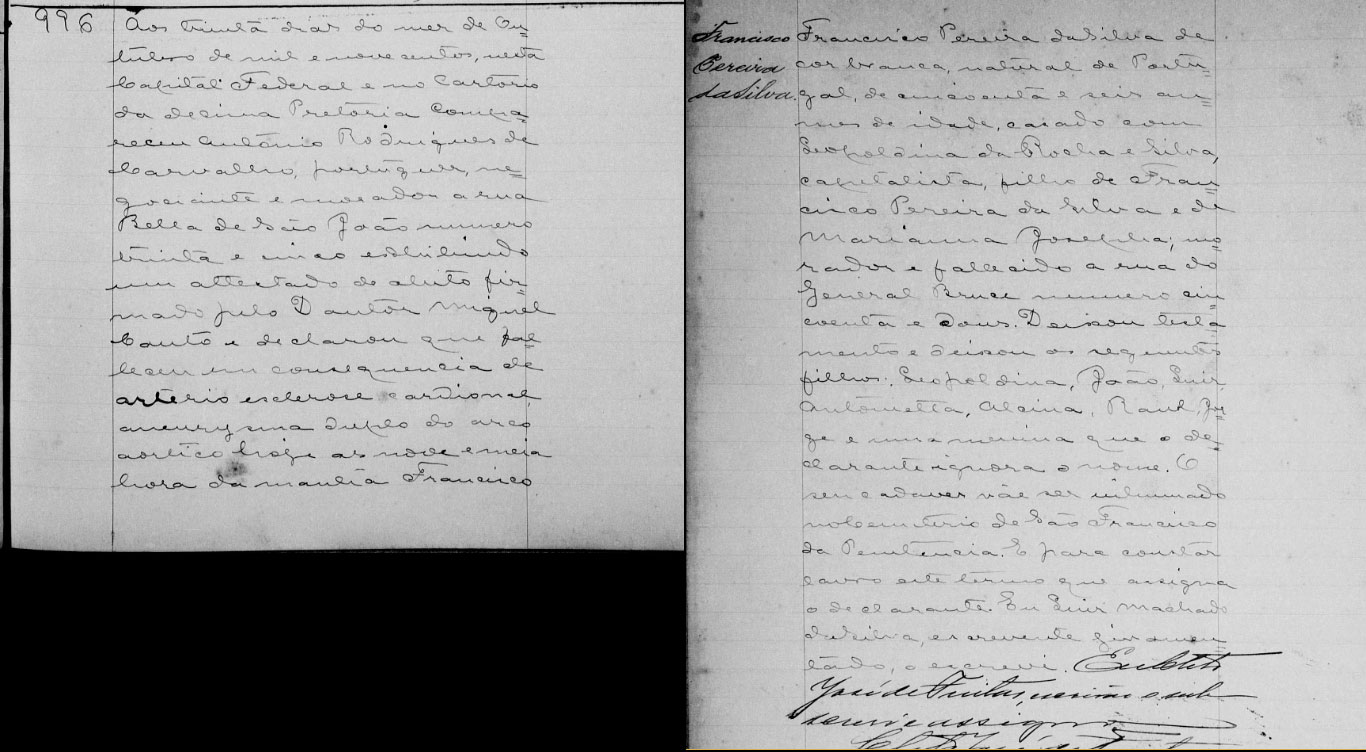 996
Aos trinta dias do mez de Ou=
tubro de mil e novecentos, nesta
Capital Federal e no Cartorio
da decima Pretoria compa=
receu Antônio Rodrigues de
Carvalho, portuguez, ne=
gociante e morador a rua
Bella de São João numero
trinta e cinco exhibindo
um attestado de obito fir=
mado pelo Doutor Miguel
Couto e declarou que fal=
leceu em consequencia de
arterio esclerose cardio
aneurysma duplo do arco
aortico hoje as nove e meia
hora da manhã Francisco
Francisco
Pereira
da Silva.
Francisco Pereira da Silva de
cor branca, natural de Portu=
gal, de cincoenta e seis an=
nos de idade, casado com
Leopoldina da Rocha e Silva,
capitalista, filho de Fran=
cisco Pereira da Silva e de
Marianna Josepha; mo=
rador e fallecido a rua do
General Bruce numero cin=
coenta e dous. Deixou testa=
mento e deixou os seguintes
filhos. Leopoldina, João, Luiz,
Antonietta, Alcina, Raul, Jor=
ge e uma menina que o de=
clarante ignora o nome. O
seu cadaver vae ser inhumado
no Cemiterio de São Francisco
da Penitencia. E para constar
lavro este termo que assigna
o declarante. Eu Luiz Machado
da Silva, escrevente juramen=
tado, o escrevi. Eu
José de Freitas, escrivão o sub=
screvi e assigno